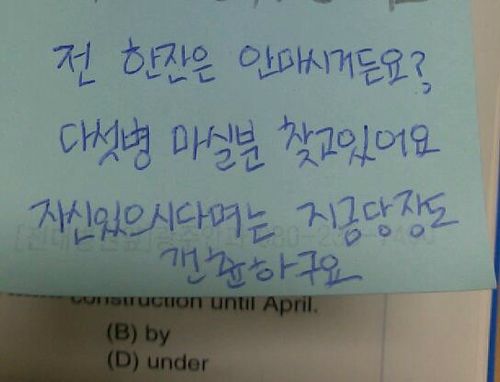 전 한잔은 안마시거든요?
다섯병 마실분 찾고있어요
자신있으시다며는 지금당장도
갠춘하구요
construction until April.
(B) by
(D) under